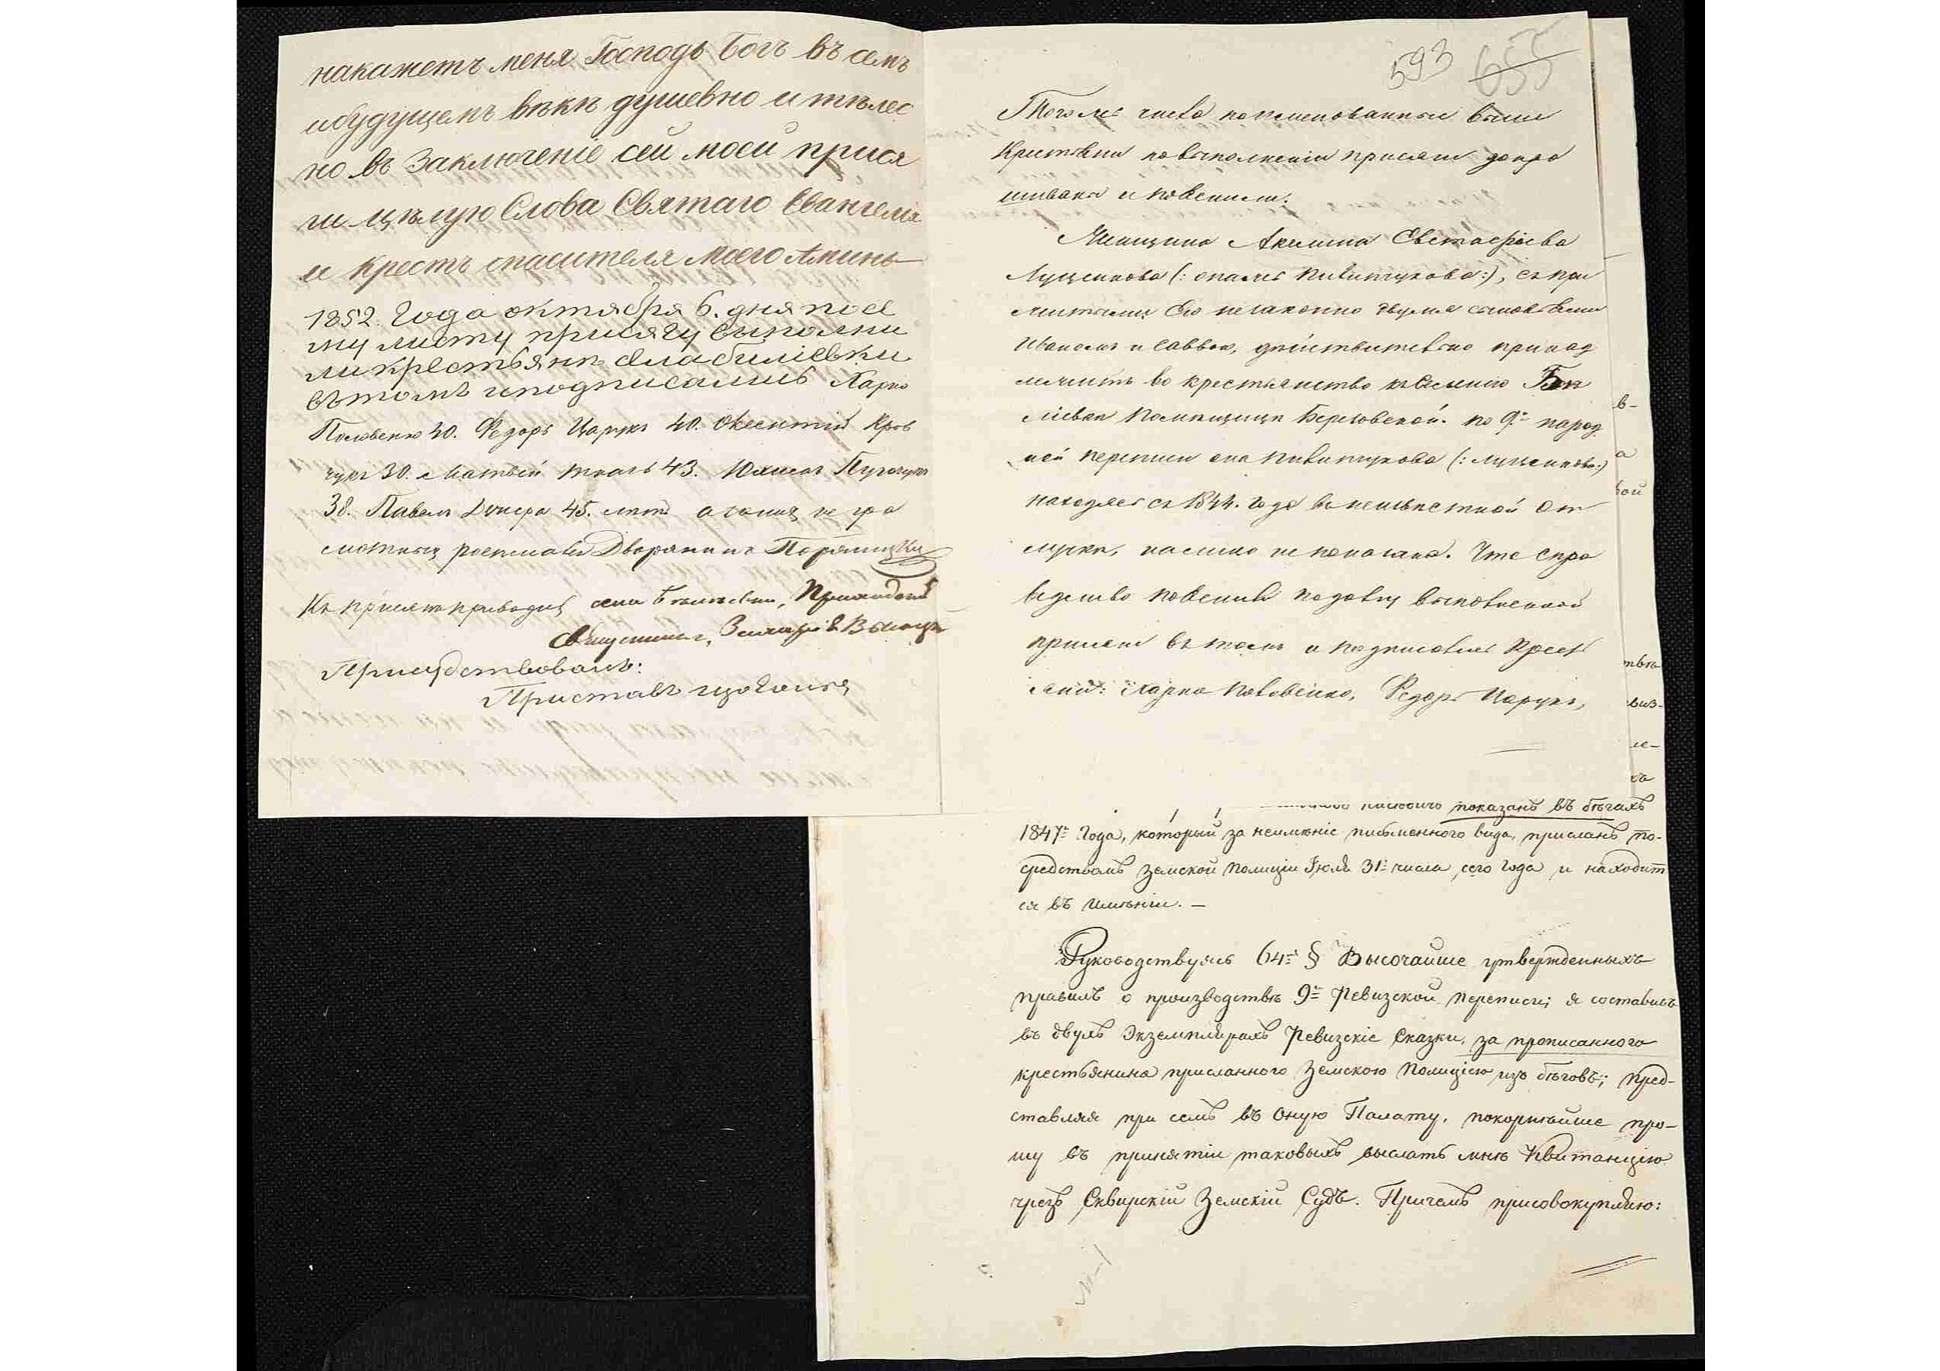 накажетъ меня Господь Богъ въ семъ
ибудущемъ вѣкѣ душевно и тѣлес
но въ Заключеніе сей моей прися
ги цѣлую Слова Святаго Евангелія
и Крестъ спасителя Моего Аминь
1852. Года октября 6. дня по се
му листу присягу выполни
ли крестьянѣ
вътомъ иподписались Карпо
Половенко 40. Федоръ Царукъ 40.
30. Матвей Ткачь 43.
38. Павелъ 45. летъ а за нихъ не гра
мотныхъ росписался Дворянинъ
Къ присягѣ приводилъ села
Присудствовалъ:
Приставъ
593 655
Тогожъ числа поименованные выше
Крестьяни по выполненіи присяги допра
шиваны и повенили:
Женщина Акилина Евстафіева
Луценкова (: онаже :), съ при
житыми Ею незаконно двумя сыновьями
Иваномъ и Саввою, дѣйствительно принад
лежитъ во крестьянство къ имѣнію
Помѣщицы Березовской. по 9й народ
ной переписи она (: Луценкова:)
находясь съ 1844. Года въ неизвестной От
лучки, насимо не показана. Что спра
ведливо повенили подолгу выполненной
присяги въ томъ и подписались Крест
яни: Карпо Половенко, Федоръ Царукъ,
в-
а
ной
тью
виз-
ле-
ха
показанъ въ бѣгахъ
1847го Года, который за неимѣніе письменного вида, присланъ по-
средствомъ Земской Полиціи Іюля 31го числа сего Года и находит
ся въ имѣніи. —
Руководствуясь 64мъ § Высочайше утвержденныхъ
правилъ о производствѣ 9й Ревизской переписи; я составилъ
въ двухъ Экземплярахъ Ревизскіе Сказки, за прописанного
крестьянина присланного Земскою Полиціею изъ бѣговъ; пред-
ставляя при семъ въ Оную Палату, покорнѣйше про-
шу въ принятіи таковыхъ выслать мнѣ Квитанцію
чрезъ Сквирскій Земскій Судъ. Причемъ присовокупляю: